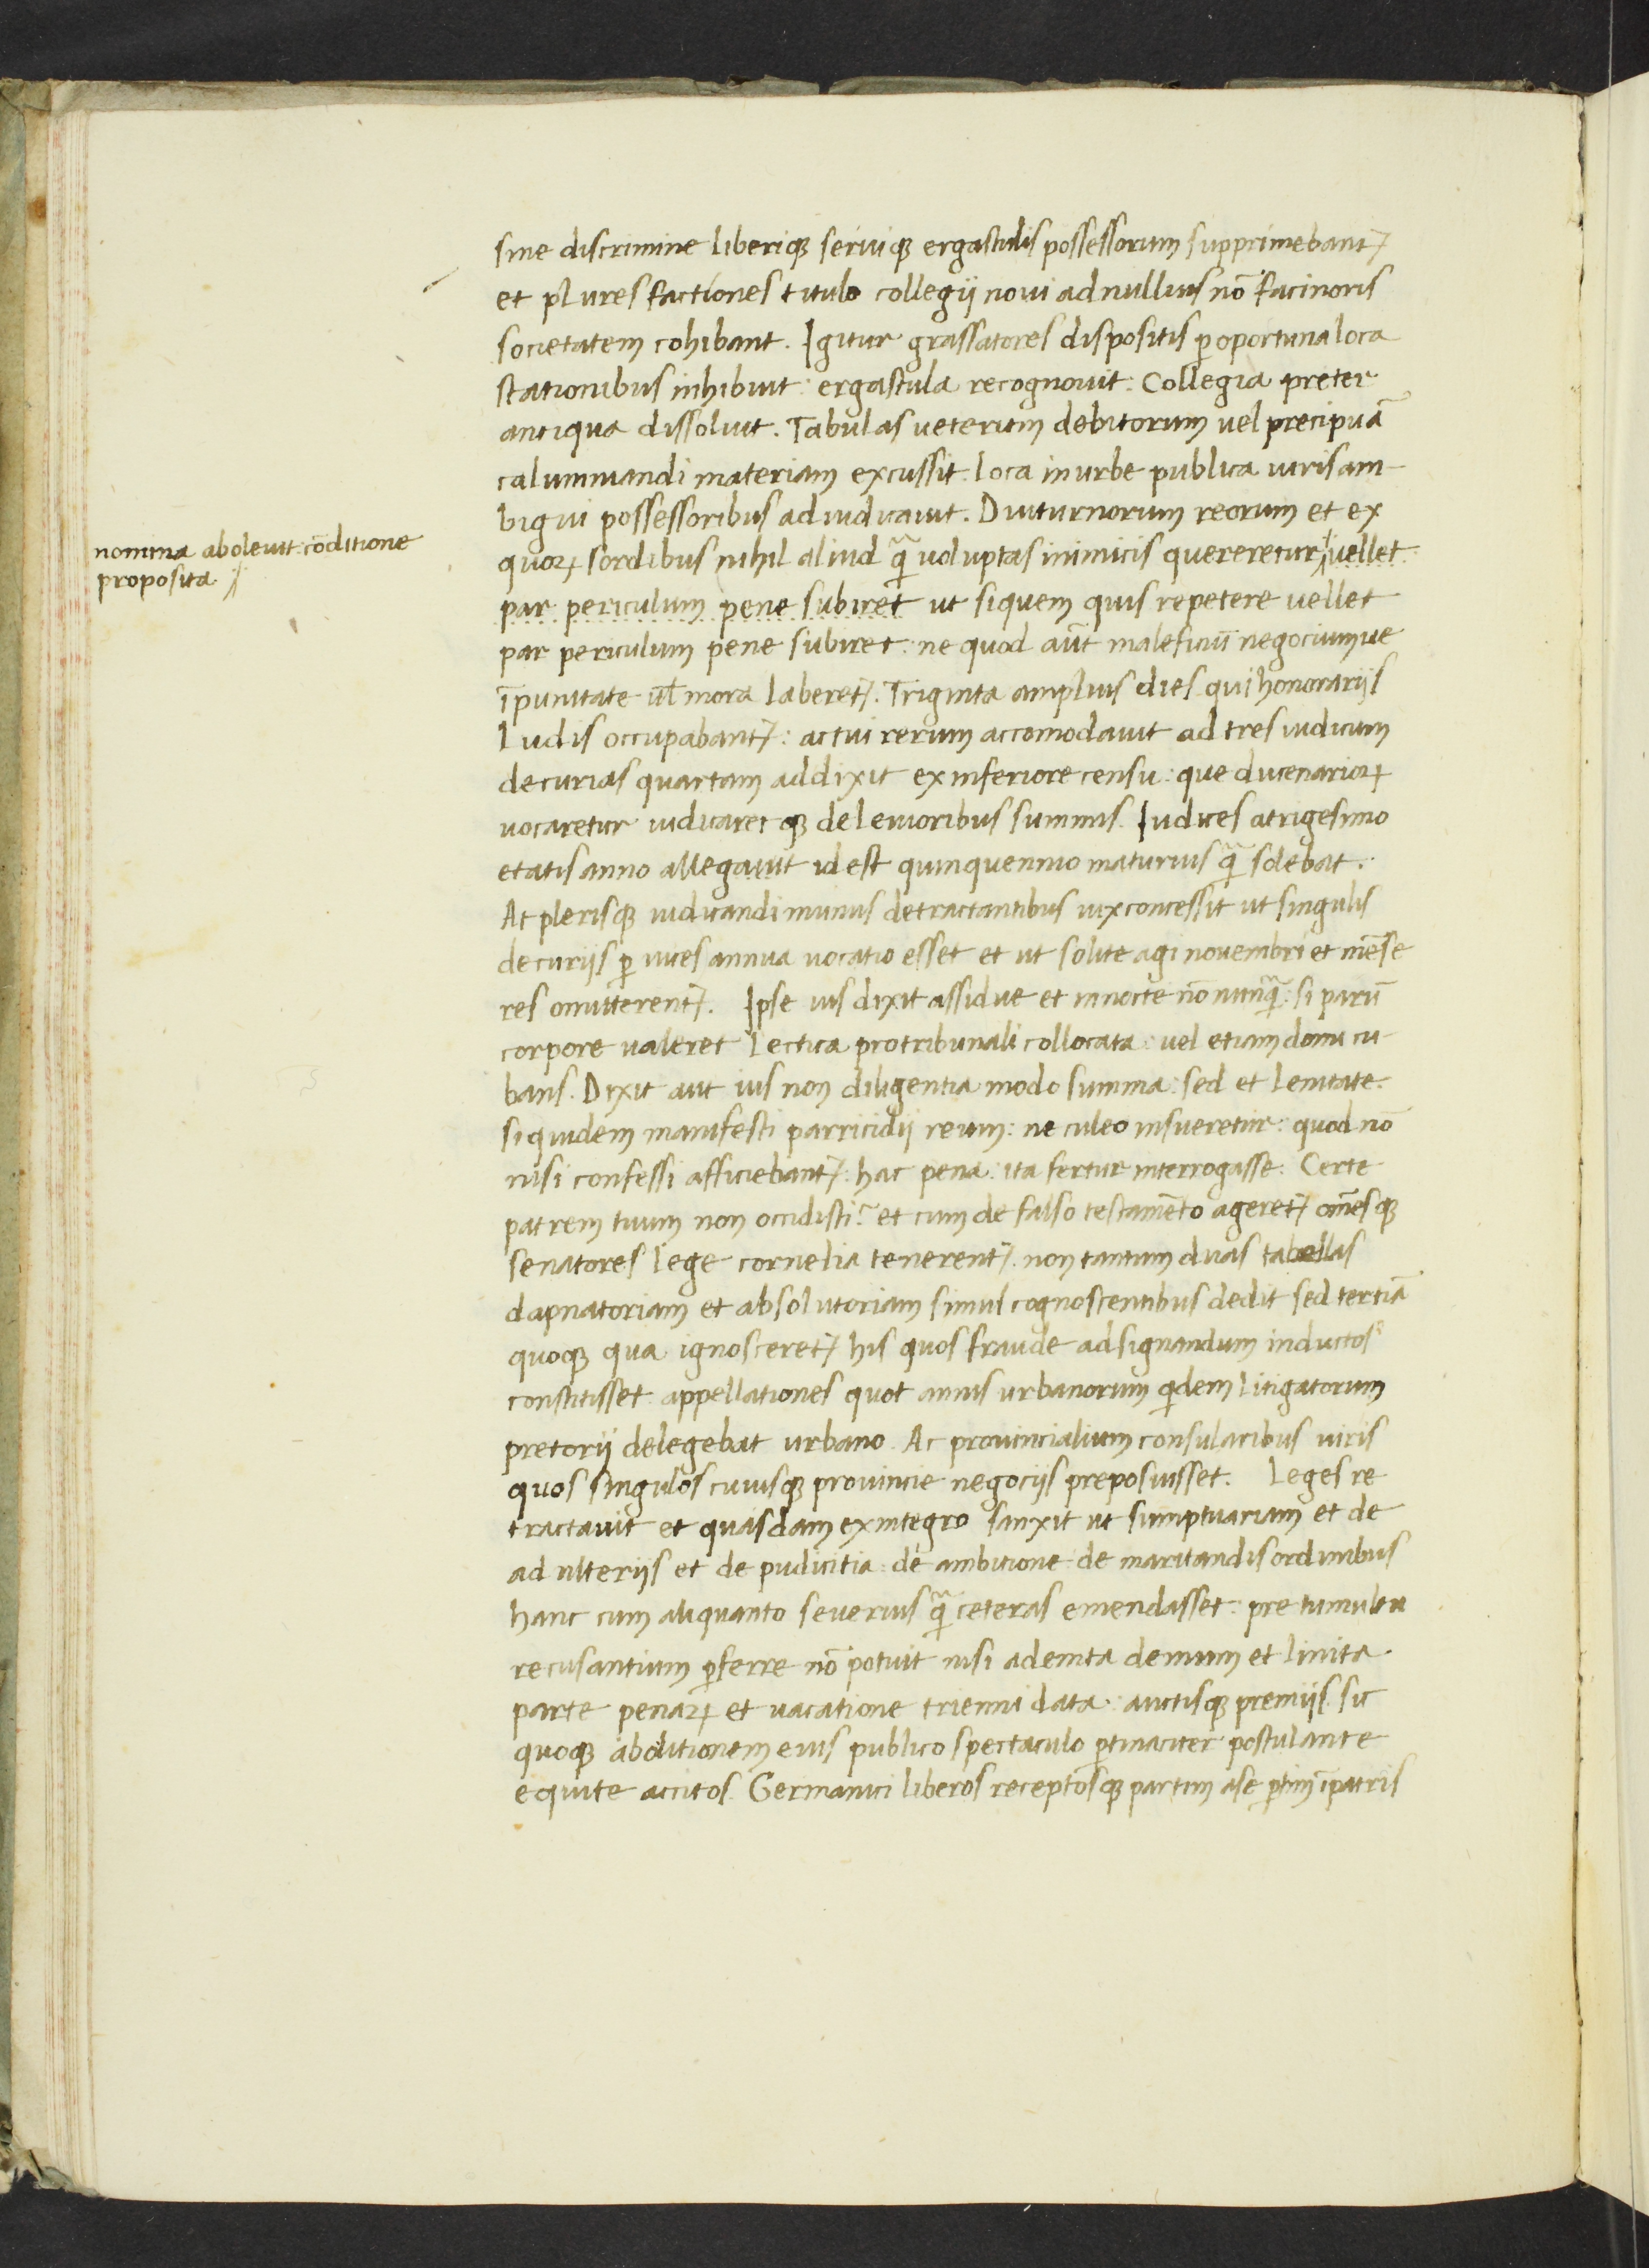 sine discrimine liberiqꝫ seruiqꝫ ergastulis possessorum supprimebantᷣ
et plures factiones titulo collegij noui ad nullius nō facinoris
societatem cohibant. Igitur grassatores dispositis ꝑ oportuna loca
stationibus inhibuit: ergastula recognouit: Collegia preter
antiqua dissoluit. Tabulas ueterum debitorum uel precipuā
calumniandi materiam excussit. loca in urbe publica iuris am-
bigui possessoribus adiudicauit. Diuturnorum reorum et ex
nomina aboleuit: cōditione
proposita
quoꝝ sordibus nihil aliud q̄ uoluptas inimicis quereretur uellet
par periculum pene subiret ut siquem quis repetere uellet
par periculum pene subiret: ne quod aūt maleficiū negociumue
īpunitate ul̄ mora laberetᷣ. Triginta amplius dies qui honorarijs
ludis occupabantᷣ: actui rerum accomodauit ad tres iudicum
decurias quartam addixit ex inferiore censu: que ducenarioꝝ
uocaretur iudicaretqꝫ de leuioribus summis. Iudices a trigesimo
etatis anno allegauit id est quinquennio maturius q̄ solebat.
Ac plerisqꝫ iudicandi munus detractantibus uix concessit ut singulis
decurijs ꝑ uices annua uocatio esset et ut solite agi nouembri et mēse
res omitterentᷣ. Ipse ius dixit assidue et in nocte nōnunq̄: si parū
corpore ualeret lectica pro tribunali collocata: uel etiam domi cu-
bans. Dixit aut ius non diligentia modo summa: sed et lenitate.
siquidem manifesti parricidij reum: ne culeo insueretur: quod nō
nisi confessi afficiebantᷣ: hac pena: ita fertur interrogasse: Certe
patrem tuum non occidisti? et cum de falso testamēto ageretᷣ omēsqꝫ
senatores lege cornelia tenerentᷣ. non tantum duas tabellas
dapnatoriam et absolutoriam simul cognoscentibus dedit sed tertiā
quoqꝫ qua ignosceretᷣ his quos fraude ad signandum inductos
constitisset. appellationes quot annis urbanorum qͥdem litigatorum
pretorij delegebat urbano. Ac prouincialium consularibus uiris
quos singulos cuiusqꝫ prouincie negocijs preposuisset. Leges re
tractauit et quasdam ex integro sanxit ut sumptuariam et de
adulterijs et de pudicitia: de ambitione de maritandis ordinibus
hanc cum aliquanto seuerius q̄ ceteras emendasset: pre tumultu
recusantium ꝑferre nō potuit nisi ademta demum et linita
parte penaꝝ et uacatione trienni data: auctisqꝫ premijs. sic
quoqꝫ abolitionem eius publico spectaculo ꝑtinaciter postulante
equite accitos. Germanici liberos receptosqꝫ partim a se ꝑtim ī patris